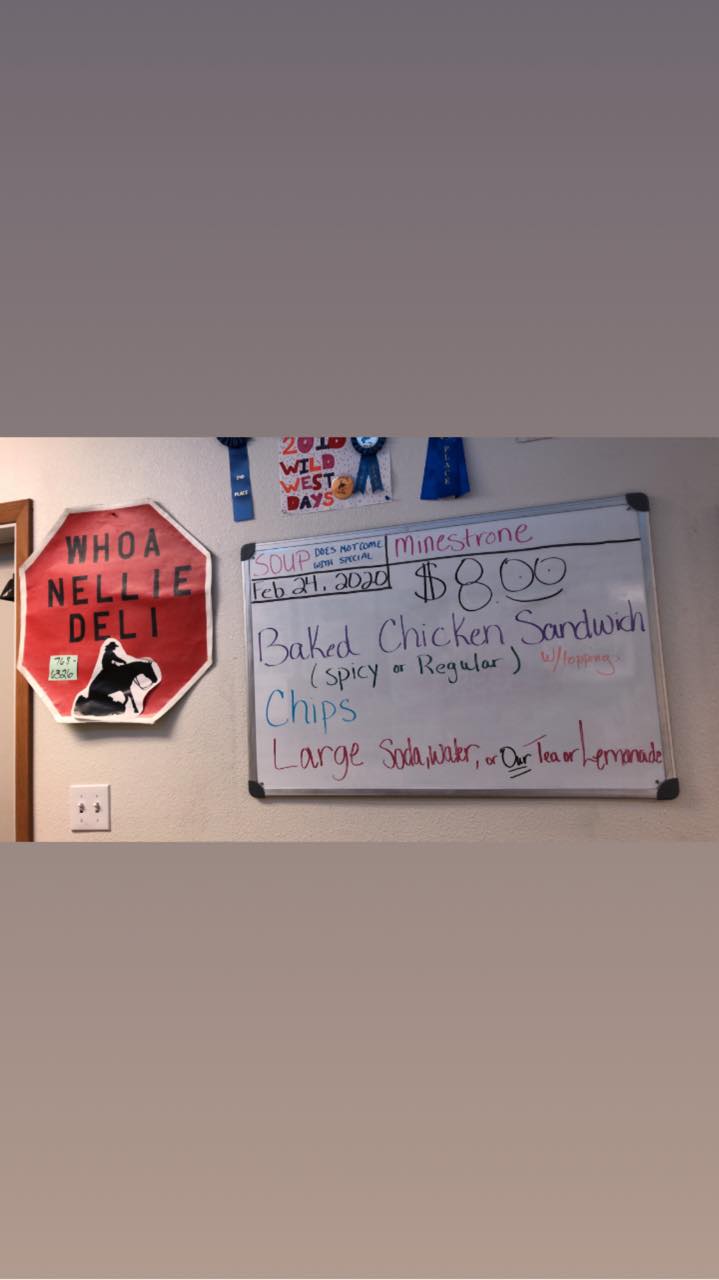 2nd
PLACE
WILD
WEST
DAYS
PLACE
WHOA
NELLIE
DELI
SOUP DOES NOT COME WITH SPECIAL
Minestrone
Feb 24, 2020
$8.00
Baked Chicken Sandwich
(spicy or Regular) w/toppings
Chips
Large Soda, water, or Our Tea or Lemonade